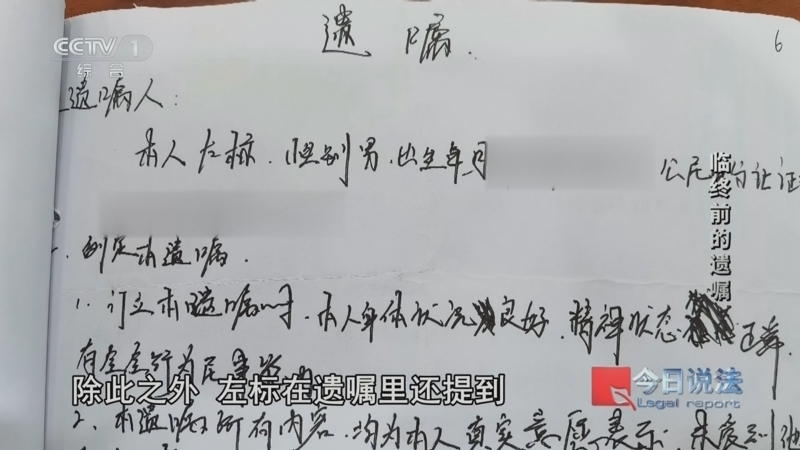 CCTV 1
综合
遗嘱.
6
遗嘱人:
本人左标.性别男.出生年月
公民身份证
临终前的遗嘱
制定本遗嘱.
1. 订立本遗嘱时.本人身体状况良好.精神状态正常.
有完全行为能力
除此之外 左标在遗嘱里还提到
今日说法
Legal report
2. 本遗嘱所有内容.均为本人真实意愿表示,未受到